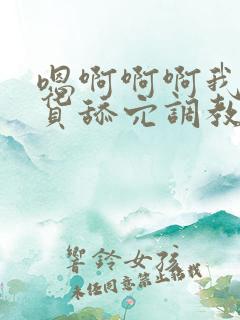 嗯啊啊啊我
舔穴調教
響鈴女孩
未经同意禁止转载